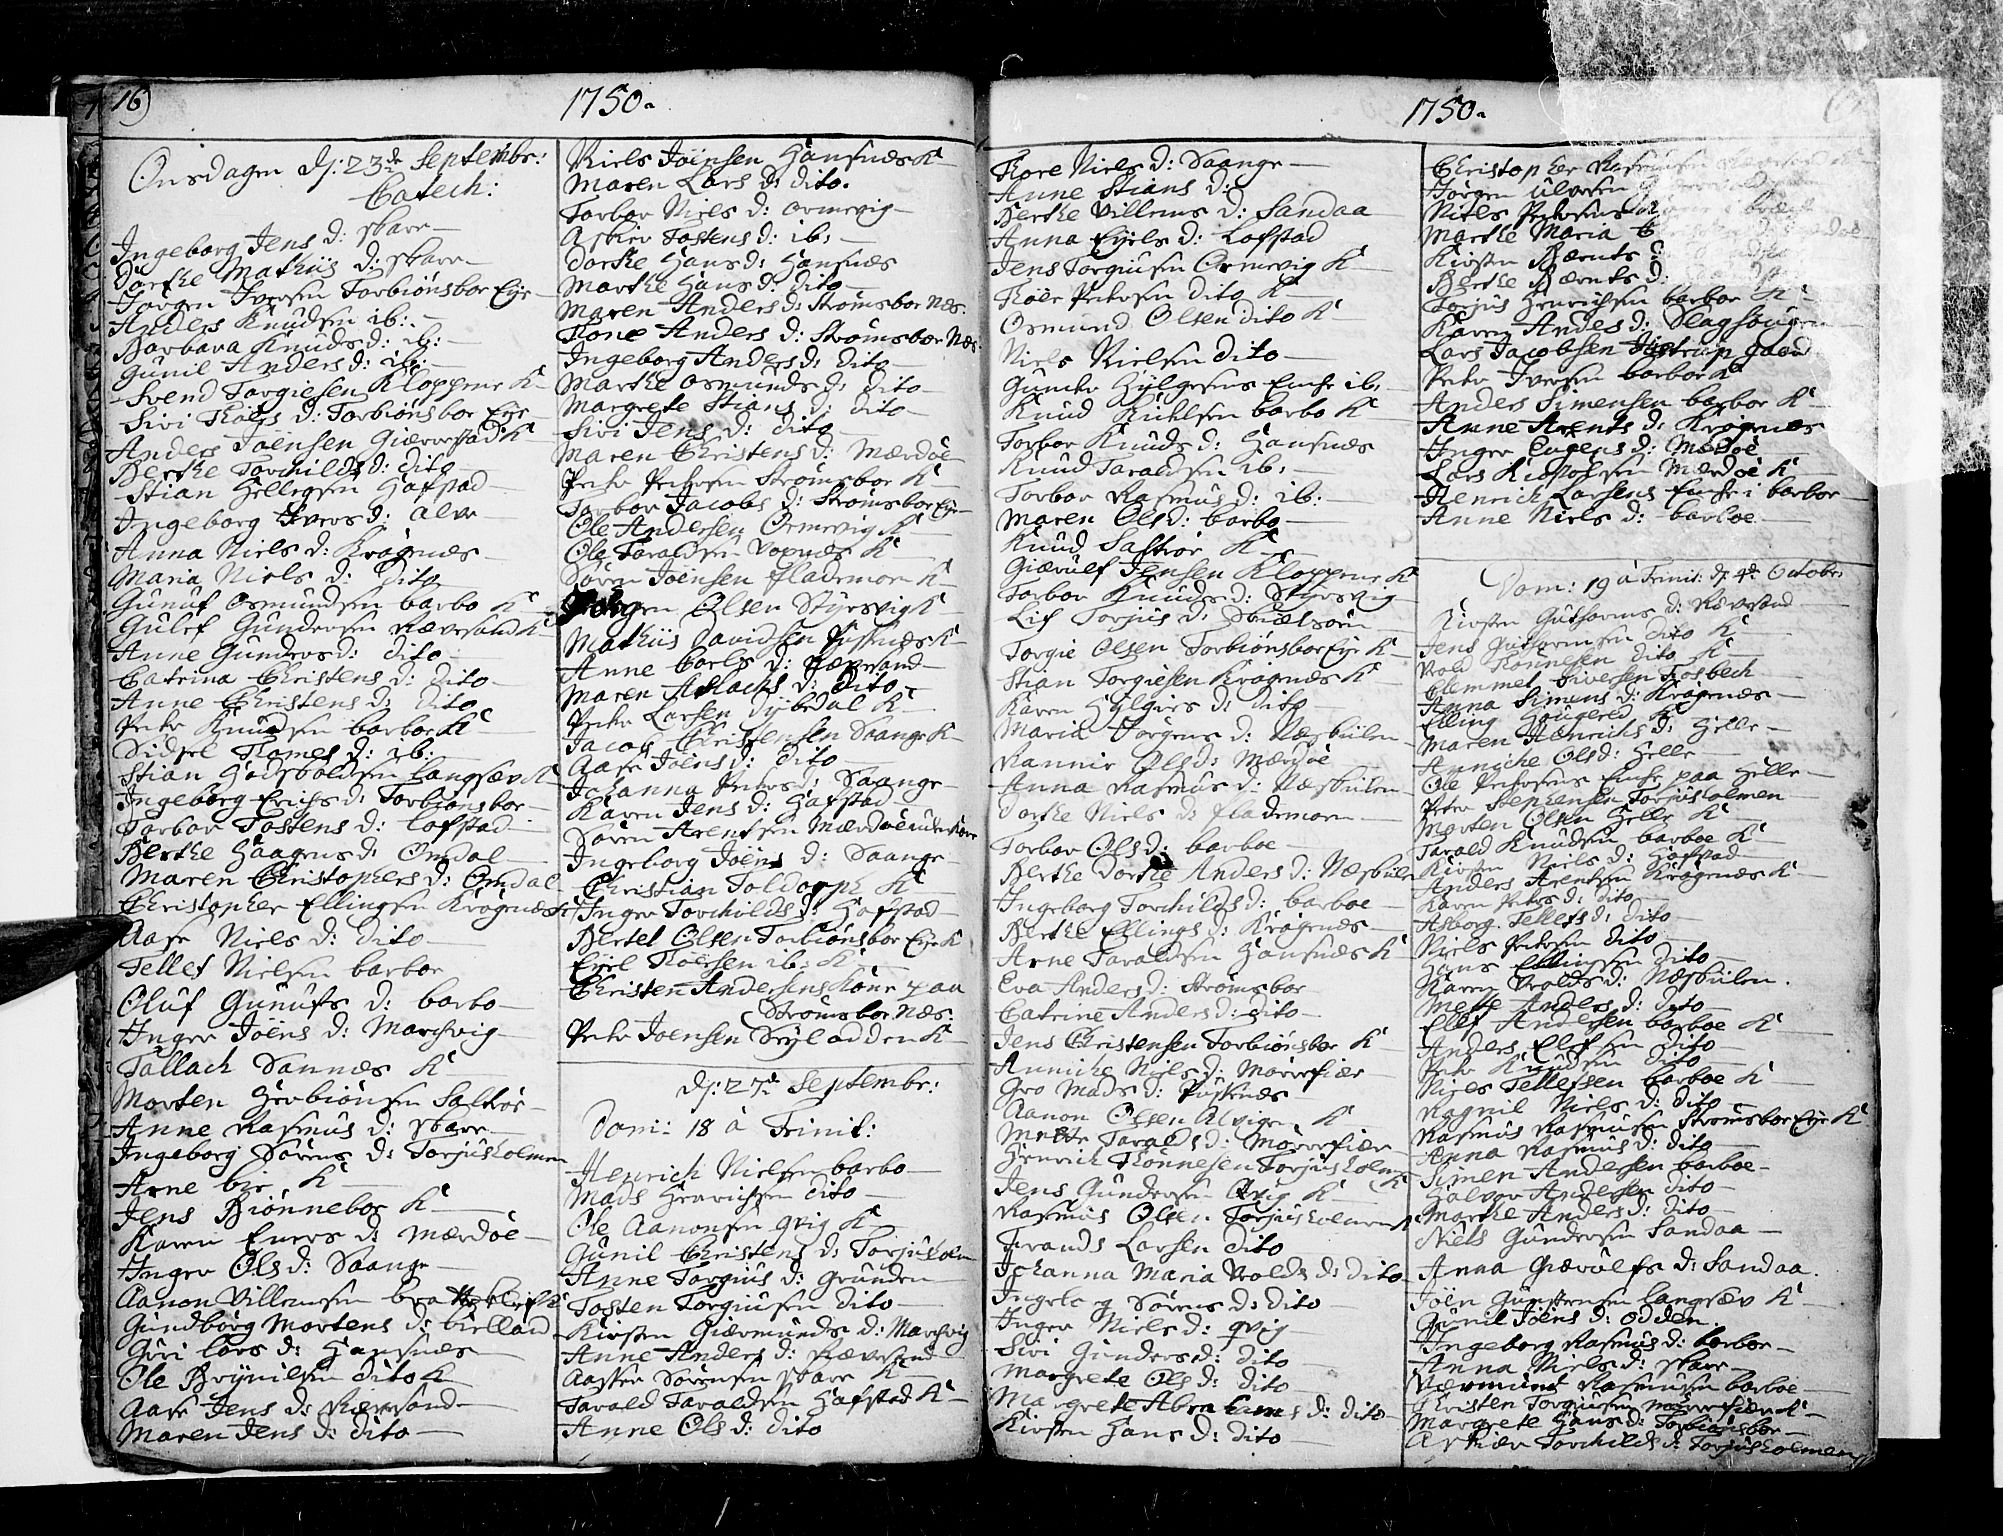 16)
1750.
Onsdagen d: 23de Septembr:
Catech:
Ingeborg Jens d: skare
Dorthe Mathiis d: skare
Jörgen Iversen Torbiönsboe Eje
Anders Knudsen ib:
Barbara Knuds d: ib:
Gunil Anders d: ib:
Svend Torgiesen Kloppene K
Sivi Thoers d: Torbiönsboe Eje
Anders Joensen Giærverstad K
Berthe Torchilds d: dito
Stian Hellegsen Hafstad
Ingeborg Ivers d: alve
Anna Niels d: Krogenæs
Maria Niels d: Dito
Gunuf Osmundsen barbo K
Gulef Gundersen Rævesand K
Anne Gunders d: dito
Catrina Christens d: dito
Anne Christens d: dito
Peter Knudsen barboe K
Sidsel Thomes d: ib:
Stian Godsvoldsen Langsæv K
Ingeborg Erichs d: Torbiönsboe
Torbor Tostens d: Lofstad
Berthe Haagens d: Omdal
Maren Christophers d: Omdal
Christopher Ellingsen Krogenæs K
Aase Niels d: dito
Tellef Nielsen barboe
Oluf Gunufs d: barbo
Inger Joens d: Marchvig
Tallach Sannæs K
Morten Herbiönsen Saltröe
Anne Rasmus d: skare
Ingeborg Sörens d: Torjusholmen
Arne bie K
Jens Biönneboe K
Karen Evers d: Mærdöe
Inger Ols d: Saange
Aanon Villemsen K
Gundborg Mortens d: bielland
Giöri Lars d: Hansnæs
Ole Brynilsen dito K
Aase Jens d: Rævesand
Maren Jens d: dito
Niels Joensen Hansnæs K
Maren Lars d: dito.
Torbor Niels d: Ormevig
Askier Tostens d: ib:
Dorthe Hans d: Hansnæs
Marthe Hans d: dito
Maren Anders d: Strömsboe Næs:
Tone Anders d: Strömsboe Næs:
Ingeborg Anders d: dito
Marthe Osmunds d: dito
Margrete Stians d: dito
Sivi Jens d: dito
Maren Christens d: Mærdöe
Peter Petersen Strömsboe K
Torbor Jacobs d: Strömsboe Eje
Ole Andersen Ormevig K
Ole Taraldsen Voxnæs K
Sören Joensen flademoen K
Jörgen Olsen Styrsvig K
Mathiis Davidsen Pusknæs K
Anne Carls d: Rævesand
Maren Aslachs d: Dito
Peter Larsen Dybedal K
Jacob Christensen Saange K
Aase Joens d: dito
Johanna Peters d: Saange
Karen Jens d: Hafstad
Sören Arentsen Mærdöe
Ingeborg Joens d: Saange
Christian Toldorph K
Inger Torchilds d: Hafstad
Bertel Olsen Torbiönsboe Eje K
Eyel Thoersen ib: K
Christen Andersens Kone paa
Strömsboe Næs:
Peter Joensen Seyladden K
d: 27de Septembr:
Dom: 18 à Trinit:
Henrich Nielsen barbo
Mads Henrichsen dito
Ole Aanonsen qvig K
Gunil Christens d: Torjusholm
Anne Torgius d: Grunden
Tosten Torgiusen dito
Kirsten Giermunds d: Marchvig
Anne Anders d: Rævesand
Aasten Sörensen skare K
Tarald Taraldsen Hafstad K
Anne Ols d: dito
1750.
Thore Niels d: Saange
Anne Stians d:
Berthe Villems d: Sandaa
Anna Eyels d: Lofstad
Jens Torgiusen Ormevig K
Thoer Petersen dito K
Osmund Olsen dito K
Niels Nielsen dito
Gunder Hylgesens Enche ib:
Knud Kittelsen barbo K
Torbor Knuds d: Hansnæs
Knud Taraldsen ib:
Torbor Rasmus d: ib:
Maren Ols d: barbo
Knud Saltröe K
Giærulf Jensen Kloppene K
Torbor Knuds d: Styrsvig
Lis Torjus d: Skielsöen
Torgie Olsen Torbiönsboe Eje K
Stian Torgiesen Krogenæs K
Karen Hylgies d: dito
Maria Jörgens d: Næskiilen
Rannie Ols d: Mærdöe
Anna Rasmus d: Næskiilen
Dorthe Niels d: flademoen
Torbor Ols d: barboe
Berthe Dorthe Anders d: Næskiilen
Ingeborg Torchilds d: barboe
Berthe Ellings d: Krogenæs
Arne Taraldsen Hansnæs K
Eva Anders d: Strömsboe
Catrine Anders d: dito
Jens Christensen Torbiönsboe K
Anniche Niels d: Morefiær
Gro Mads d: Pusknæs
Aanon Olsen Alvigen K
Mette Taralds d: Morefiær
Henrich Thönnesen Torjusholmen K
Jens Gundersen Qvig K
Rasmus Olsen Torjusholmen K
Frands Larsen dito
Johanna Maria Volds d: dito
Ingeborg Sörens d: dito
Inger Niels d: qvig
Sivi Gunders d: dito
Margrete Ols d: dito
Margrete Abrahams d: dito
Kirsten Hans d: dito
Christopher Rasmusen
Jörgen Ulvesen
Niels Petersens
Marthe Maria
Kirsten Bærnts d:
Berthe Bærnts d:
Torjus Henrichsen barboe K
Karen Anders d: Slagsougen
Lars Jacobsen
Peter Iversen barboe K
Anders Simensen barboe K
Anne Arents d: Krogenæs
Inger Eugens d: Mærdöe
Lars Mærdöe K
Henrich Larsens Enche i barboe
Anne Niels d: barboe
Dom: 19 à Trinit: d: 4de Octobr:
Kirsten Gutthorms d: Rævesand
Jens Gutthormsen dito K
Vold Thönnesen dito K
Clemmet Siversen Fosbech
Anna Simens d: Krogenæs
Elling Hougered K
Maren Henrichs d: Helle
Anniche Ols d: Helle
Ole Petersens Enche paa Helle
Peter Stephensen Torjusholmen
Morten Olsen Helle K
Tarald Knudsen barboe K
Kirsten Niels d: Hafstad
Anders Arentsen Krogenæs K
Karen Peters d: dito
Asborg Tellefs d: dito
Niels Petersen dito
Hans Ellingsen dito
Karen Volds d: Næskiilen.
Mette Anders d: dito
Ellef Andersen barboe K
Anders Elefsen dito
Peter Knudsen dito
Niels Tellefsen barboe K
Ragnil Niels d: dito
Rasmus Rasmusen Strömsboe Eje K
Anna Rasmus d: dito
Simen Andersen barboe
Halvor Andersen dito
Marthe Anders d: dito
Niels Gundersen Sandaa
Anna Giærulfs d: Sandaa.
Joen Gunstensen Langsæv K
Gunil Joens d: Odden.
Ingeborg Rasmus d: barboe
Anna Niels d: skare
Værmund Rasmusen barboe
Christen Torgiusen Morefiær K
Margrete Hans d: Torbiönsboe
Askier Torchilds d: Torjusholmen